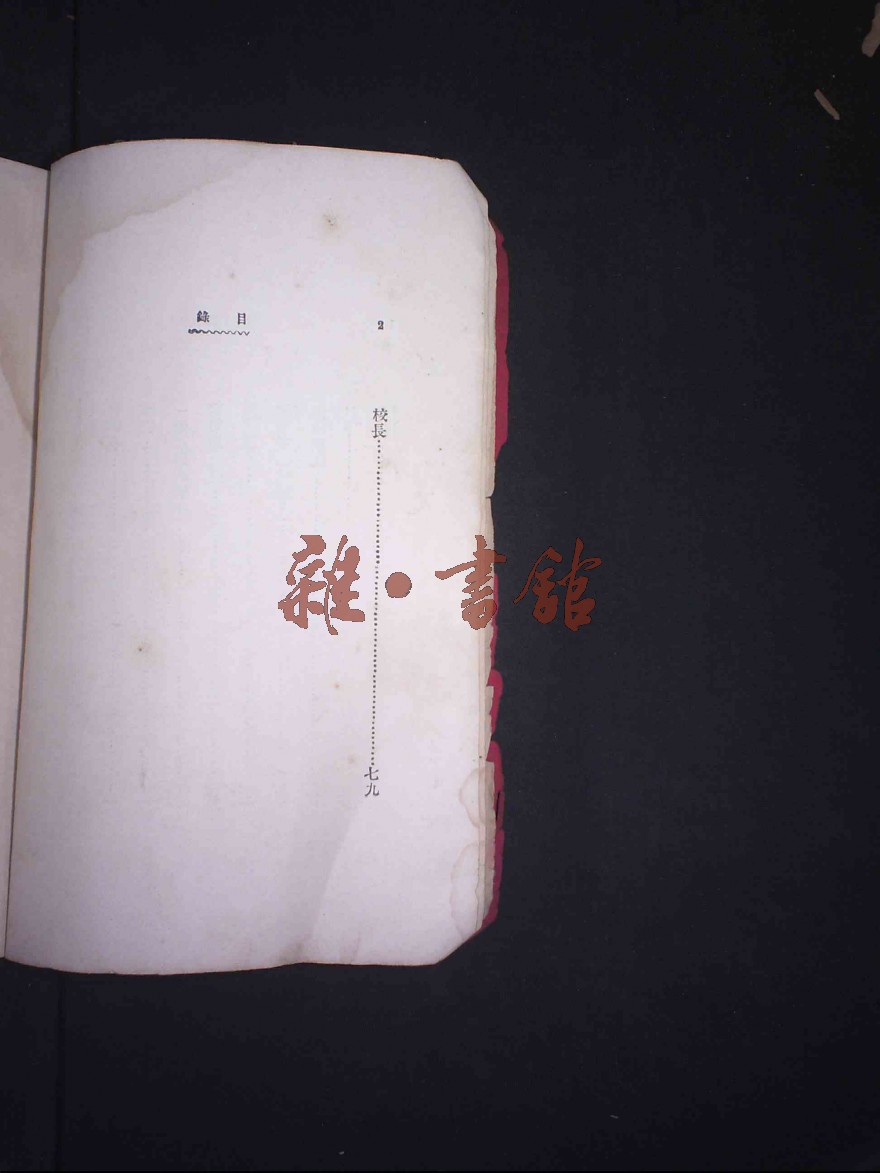 目錄
2
校長……………………七九
雜·書館